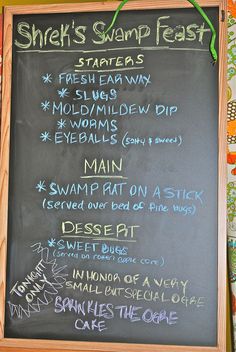 Shrek's Swamp Feast
STARTERS
* FRESH EAR WAX
* SLUGS
* MOLD/MILDEW DIP
* WORMS
* EYEBALLS (salty & sweet)
MAIN
* SWAMP RAT ON A STICK
(served over bed of fine bugs)
DESSERT
* SWEET BUGS
(served on rotten apple core)
TONIGHT ONLY!
IN HONOR OF A VERY
SMALL BUT SPECIAL OGRE
SPRINKLES THE OGRE
CAKE